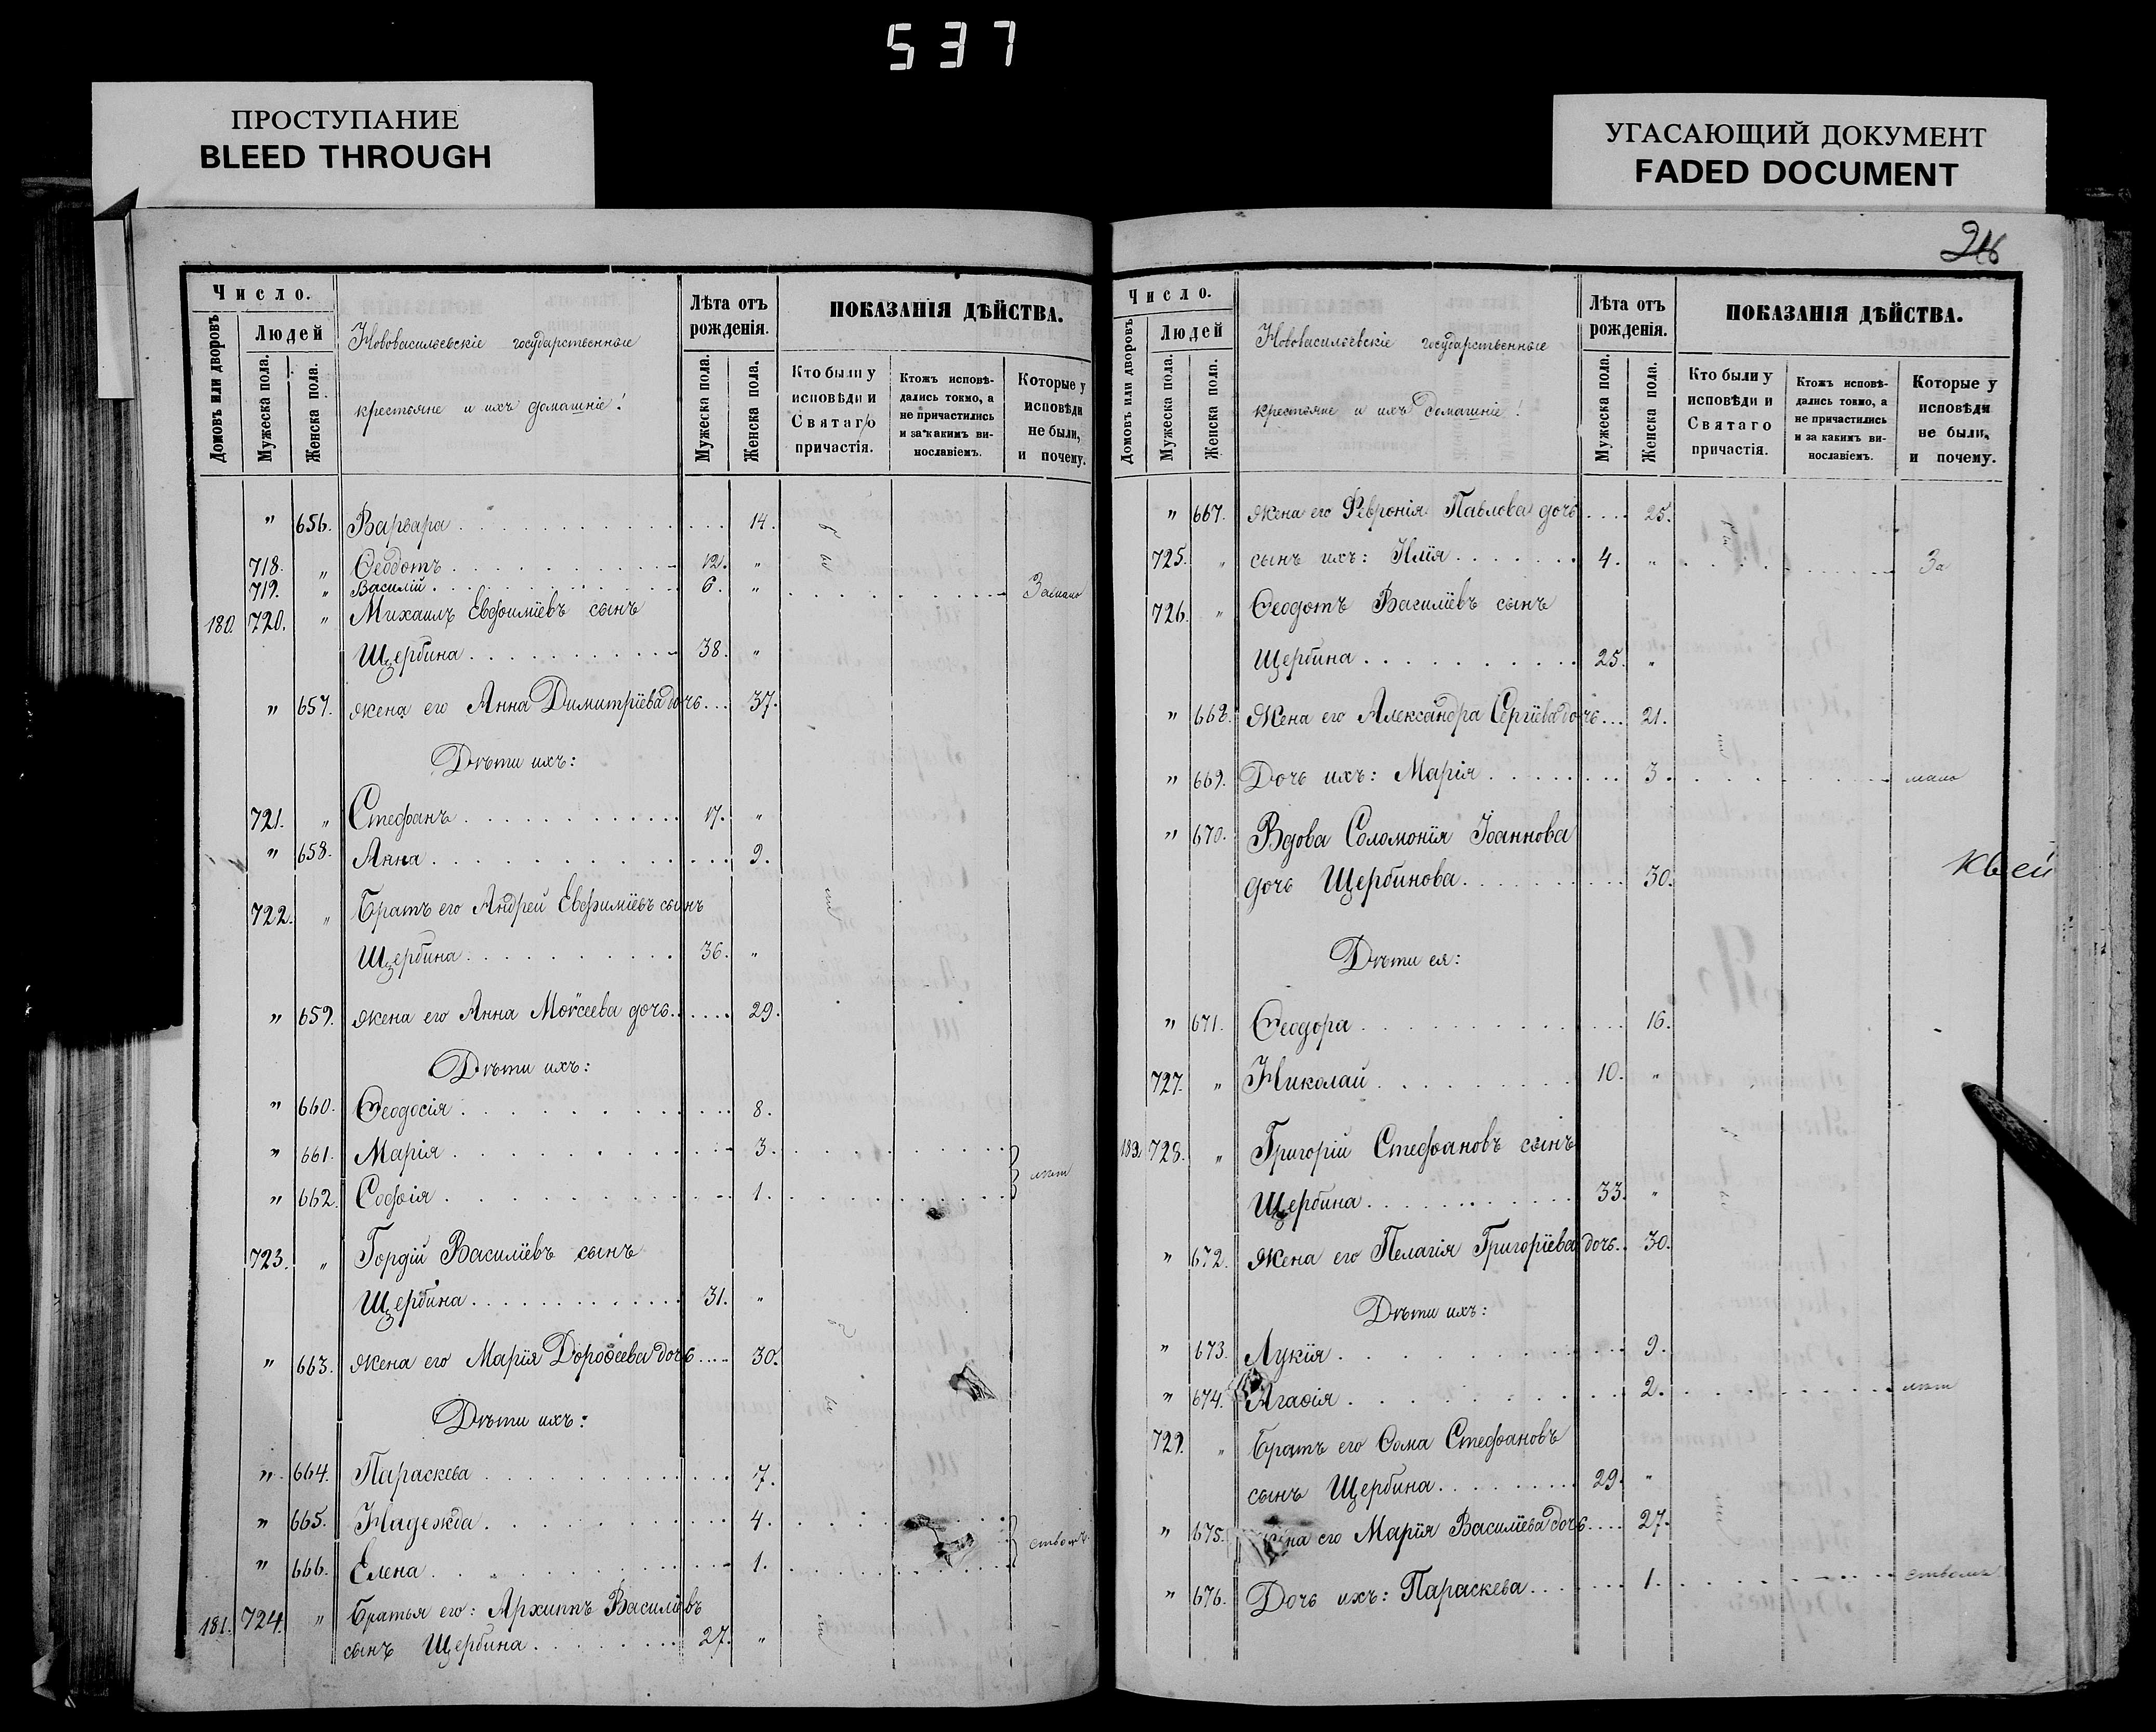 537
ПРОСТУПАНИЕ
BLEED THROUGH
УГАСАЮЩИЙ ДОКУМЕНТ
FADED DOCUMENT
Число.
Домовъ или дворовъ
Людей
Мужеска пола.
Женска пола.
Нововасильевскіе государственные
крестьяне и ихъ домашніе:
Лѣта отъ
рожденія.
Мужеска пола.
Женска пола.
ПОКАЗАНІЯ ДѢЙСТВА.
Кто были у
исповѣди и
Святаго
причастія.
Ктожъ исповѣ-
дались токмо, а
не причастились
и за какимъ ви-
нославіемъ.
Которые у
исповѣди
не были,
и почему.
" 656. Варвара 14.
718. " Ѳеодотъ 12. "
719. " Василій 6. " За мало
180. 720. " Михаилъ Евфиміевъ сынъ
Щербина 38. "
" 657. жена его Анна Димитріева дочь 37.
Дѣти ихъ:
721. " Стефанъ 17. "
" 658. Анна 9.
722. " Братъ его Андрей Евфиміевъ сынъ
Щербина 36. "
" 659. жена его Анна Моѵсеева дочь 29.
Дѣти ихъ:
" 660. Ѳеодосія 8.
" 661. Марія 3.
" 662. Софія 1. лѣт
723. " Гордій Василіевъ сынъ
Щербина 31. "
" 663. жена его Марія Дороѳеева дочь 30.
Дѣти ихъ:
" 664. Параскева 7.
" 665. Надежда 4.
" 666. Елена 1. ствомъ
181. 724. " Братья его: Архиппъ Василіевъ
сынъ Щербина 27. "
Число.
Домовъ или дворовъ
Людей
Мужеска пола.
Женска пола.
Нововасильевскіе государственные
крестьяне и ихъ домашніе:
Лѣта отъ
рожденія.
Мужеска пола.
Женска пола.
ПОКАЗАНІЯ ДѢЙСТВА.
Кто были у
исповѣди и
Святаго
причастія.
Ктожъ исповѣ-
дались токмо, а
не причастились
и за какимъ ви-
нославіемъ.
Которые у
исповѣди
не были,
и почему.
" 667. жена его Феѵронія Павлова дочь 25.
725. " сынъ ихъ: Илія 4. " За
726. " Ѳеодотъ Василіевъ сынъ
Щербина 25. "
" 668. Жена его Александра Сергіева дочь 21.
" 669. Дочь ихъ: Марія 3. мало
" 670. Вдова Соломонія Іоаннова
дочь Щербинова 30.
Дѣти ея:
" 671. Ѳеодора 16.
727. " Николай 10. "
182. 728. " Григорій Стефановъ сынъ
Щербина 33. "
" 672. Жена его Пелагія Григоріева дочь 30.
Дѣти ихъ:
" 673. Лукія 9.
" 674. Агаѳія 2. лѣт
729. " Братъ его Ѳома Стефановъ
сынъ Щербина 29. "
" 675. жена его Марія Василіева дочь 27.
" 676. Дочь ихъ: Параскева 1. ствомъ